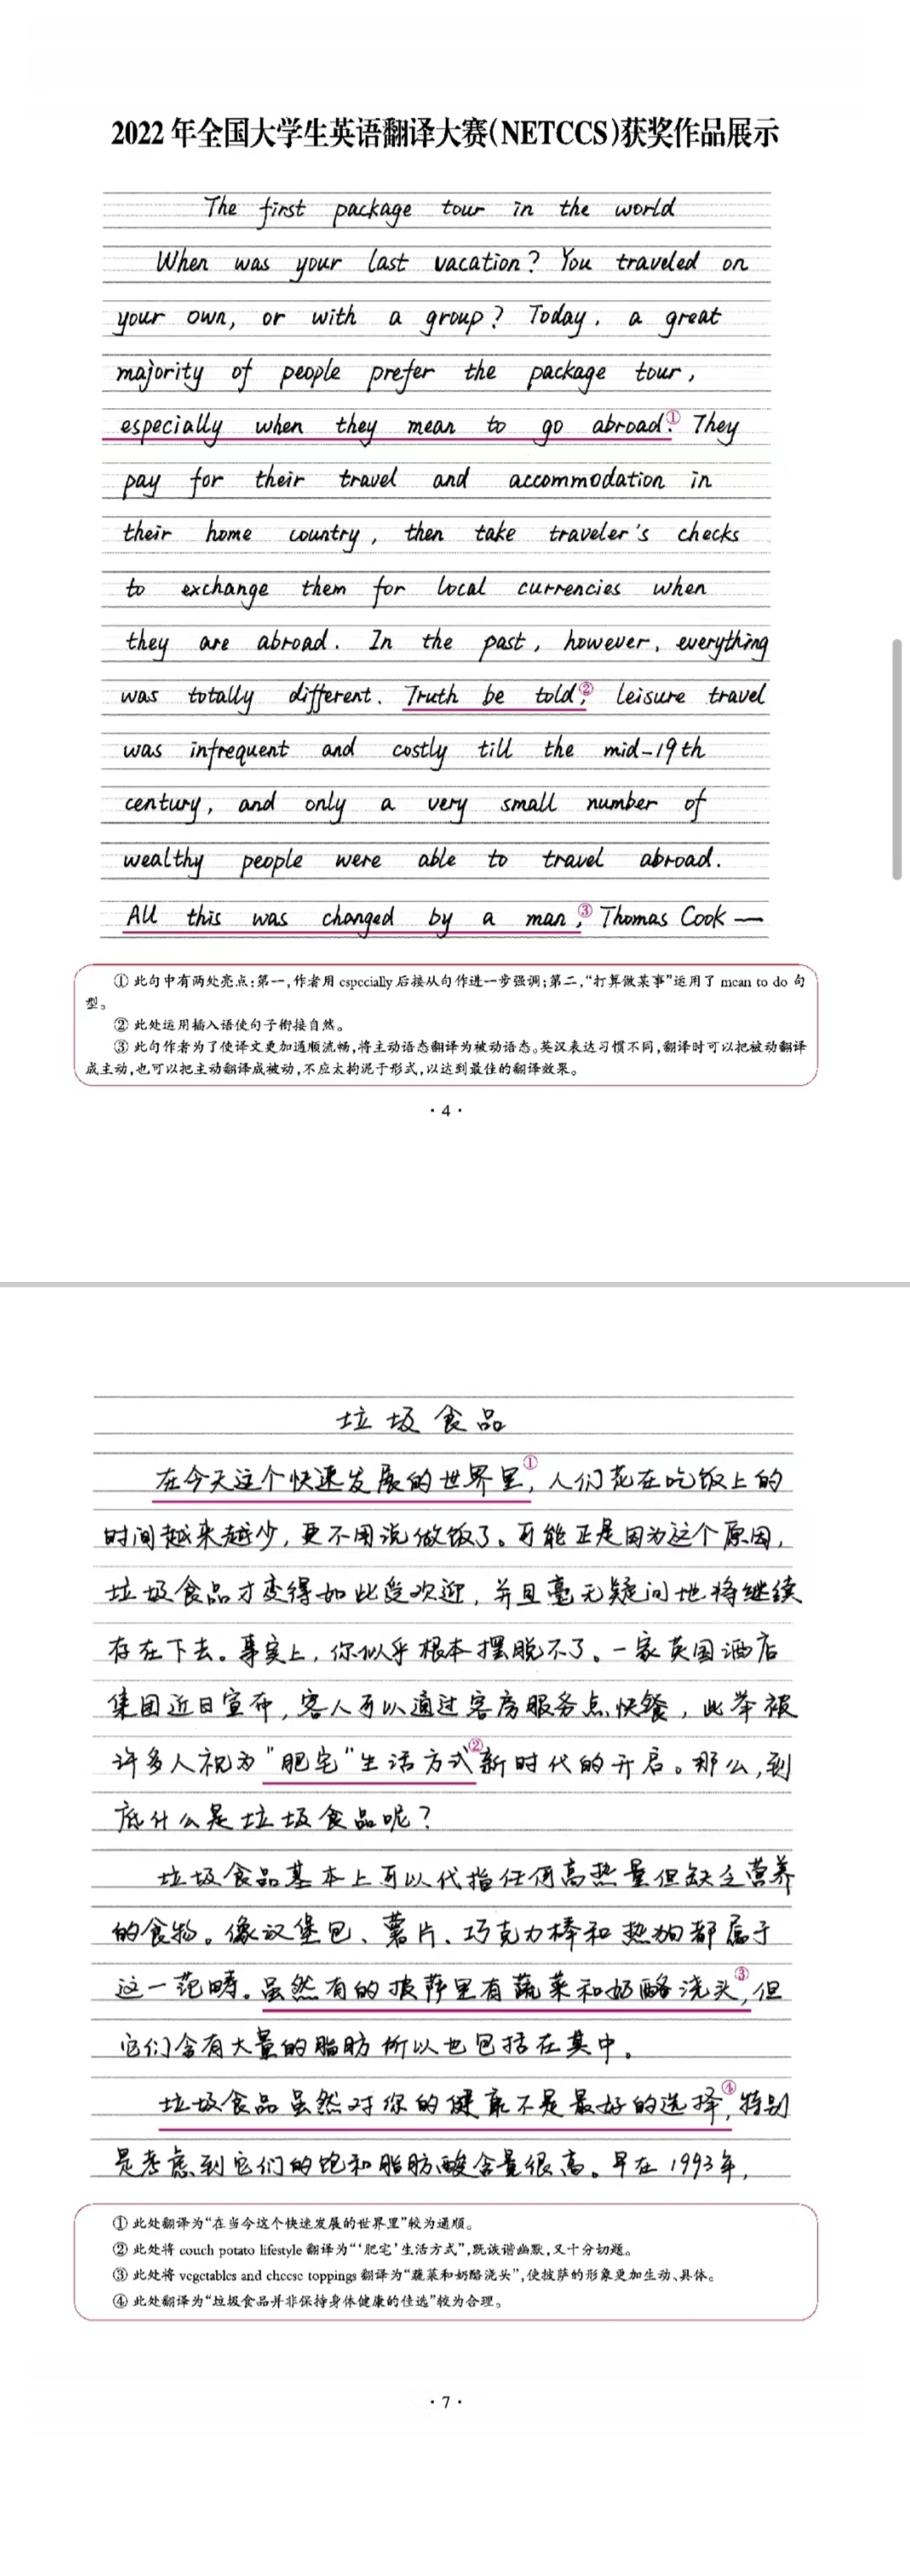 2022 年全国大学生英语翻译大赛(NETCCS)获奖作品展示
The first package tour in the world
When was your last vacation? You traveled on
your own, or with a group? Today, a great
majority of people prefer the package tour,
especially when they mean to go abroad.① They
pay for their travel and accommodation in
their home country, then take traveler's checks
to exchange them for local currencies when
they are abroad. In the past, however, everything
was totally different. Truth be told,② leisure travel
was infrequent and costly till the mid-19th
century, and only a very small number of
wealthy people were able to travel abroad.
All this was changed by a man,③ Thomas Cook —
① 此句中有两处亮点:第一,作者用 especially 后接从句作进一步强调;第二,“打算做某事”运用了 mean to do 句
型。
② 此处运用插入语使句子衔接自然。
③ 此句作者为了使译文更加通顺流畅,将主动语态翻译为被动语态。英汉表达习惯不同,翻译时可以把被动翻译
成主动,也可以把主动翻译成被动,不应太拘泥于形式,以达到最佳的翻译效果。
· 4 ·
垃圾食品
在今天这个快速发展的世界里①,人们花在吃饭上的
时间越来越少,更不用说做饭了。可能正是因为这个原因,
垃圾食品才变得如此受欢迎,并且毫无疑问地将继续
存在下去。事实上,你似乎根本摆脱不了。一家英国酒店
集团近日宣布,客人可以通过客房服务点快餐,此举被
许多人视为“肥宅”生活方式②新时代的开启。那么,到
底什么是垃圾食品呢?
垃圾食品基本上可以代指任何高热量但缺乏营养
的食物。像汉堡包、薯片、巧克力棒和热狗都属于
这一范畴。虽然有的披萨里有蔬菜和奶酪浇头③,但
它们含有大量的脂肪所以也包括在其中。
垃圾食品虽然对你的健康不是最好的选择④,特别
是考虑到它们的饱和脂肪酸含量很高。早在1993年,
① 此处翻译为“在当今这个快速发展的世界里”较为通顺。
② 此处将 couch potato lifestyle 翻译为“‘肥宅’生活方式”,既诙谐幽默,又十分切题。
③ 此处将 vegetables and cheese toppings 翻译为“蔬菜和奶酪浇头”,使披萨的形象更加生动、具体。
④ 此处翻译为“垃圾食品并非保持身体健康的佳选”较为合理。
· 7 ·